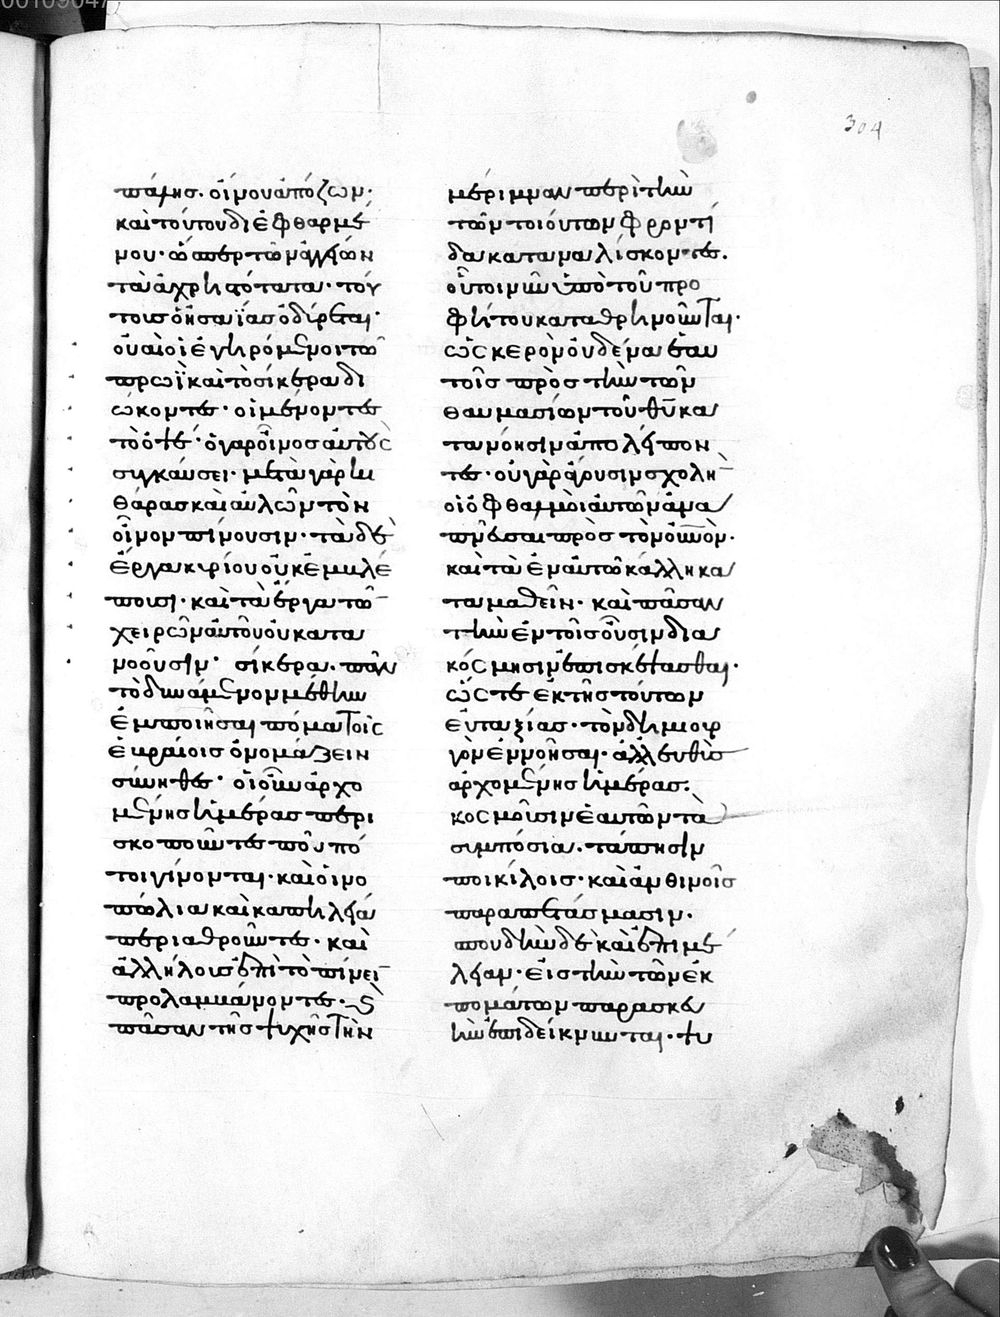 304
πάγησ. οἴνου ἀπόζων·
καὶ τούτου διεφθαρμέ
νου· ὥσπερ τῶν ἀγγείων
τὰ ἀχρηστότατα· τού
τουσ ὁ ἡσαΐασ ὀδύρεται·
οὐαὶ οἱ ἐγειρόμενοι τῶ
πρωῒ καὶ τὸ σίκερα δι
ώκοντεσ· οἱ μένοντεσ
τὸ ὀψέ· ὁ γὰρ οἶνοσ αὐτοὺσ
συγκαύσει· μετὰ γὰρ κι
θάρασ καὶ αὐλῶν τὸν
οἶνον πίνουσιν· τὰ δὲ
ἔργα κυρίου οὐκ ἐμβλέ
πουσι· καὶ τὰ ἔργα τῶν
χειρῶν αὐτοῦ οὐ κατα
νοοῦσιν· σίκερα. πᾶν
τὸ δυνάμενον μέθην
ἐμποιῆσαι πόμα τοῖσ
ἑβραίοισ ὀνομάζειν
σύνηθεσ· οἱ οὖν ἀρχο
μένησ ἡμέρασ περι
σκοποῦντεσ ποῦ πό
τοι γίνονται· καὶ οἰνο
πώλια καὶ καπηλεῖα
περιαθροῦντεσ· καὶ
ἀλλήλουσ ἐπὶ τὸ πίνειν
προλαμβάνοντεσ· καὶ
πᾶσαν τῆσ ψυχῆσ τὴν
μέριμναν περὶ τὴν
τῶν τοιούτων φροντί
δα καταναλίσκοντεσ.
οὗτοι νῦν ὑπὸ τοῦ προ
φήτου καταθρηνοῦνται·
ὡσ κερὸν οὐδένα ἑαυ
τοῖσ πρὸσ τὴν τῶν
θαυμασίων τοῦ θῦ κα
τανόησιν ἀπολείπον
τεσ· οὐ γὰρ ἄγουσιν σχολὴν
οἱ ὀφθαλμοὶ αὐτῶν ἀνα
πνεῦσαι πρὸσ τὸν οὐνὸν·
καὶ τὰ ἐν αὐτῶ κάλλη κα
ταμαθεῖν· καὶ πᾶσαν
τὴν ἐν τοῖσ οὖσιν δια
κόσμησιν ἐπισκέψασθαι·
ὥστε ἐκ τῆσ τούτων
εὐταξίασ· τὸν δημιουρ
γὸν ἐννοῆσαι· ἀλλ' εὐθὺσ
ἀρχομένησ ἡμέρασ.
κοσμοῦσιν ἑαυτῶν τὰ
συμπόσια. τάπησιν
ποικίλοισ· καὶ ἀνθινοῖσ
παραπετάσμασιν.
σπουδὴν δὲ καὶ ἐπιμέ
λειαν· εἰσ τὴν τῶν ἐκ
πομάτων παρασκευ
ὴν ἐπιδείκνυνται· ψυ